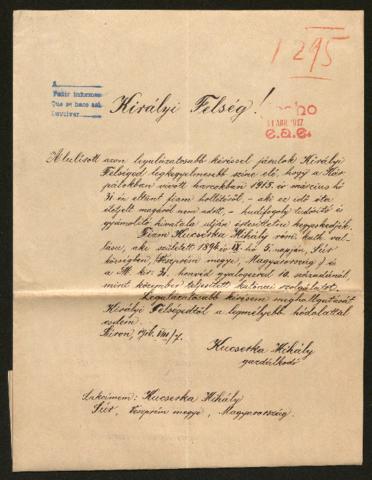 1295
A
Pedir informes
Que se hace así
Devolver
Királyi Felség!
11 ABR. 1917
e.a.e.
Alulisott azon legalázatosabb kéréssel járulok Királyi
Felséged legkegyelmesebb színe elé, hogy a Kár
pátokban vívott harcokban 1915. év március hó
31 én eltünt fiam hollétéről, - aki ez idő óta
életjelt magáról nem adott, - hadifogoly tudósító és
gyámolító hivatala utján értesíttetni kegyeskedjék.
Fiam Kucserka Mihály róm. kath. val-
lásu, aki született 1896 év IX. hó 5. napján, Súr
községben, Veszprém megye, Magyarország és
a M. kir. 31. honvéd gyalogezred 10. századánál
mint közember teljesített katonai szolgálatot.
Legalázatosabb kérésem meghallgatását
Királyi Felségedtől a legmélyebb hódolattal
Súron, 1916. VIII/7.
Kucserka Mihály
gazdálkodó
Lakcímem: Kucserka Mihály
Súr, Veszprém megye, Magyarország